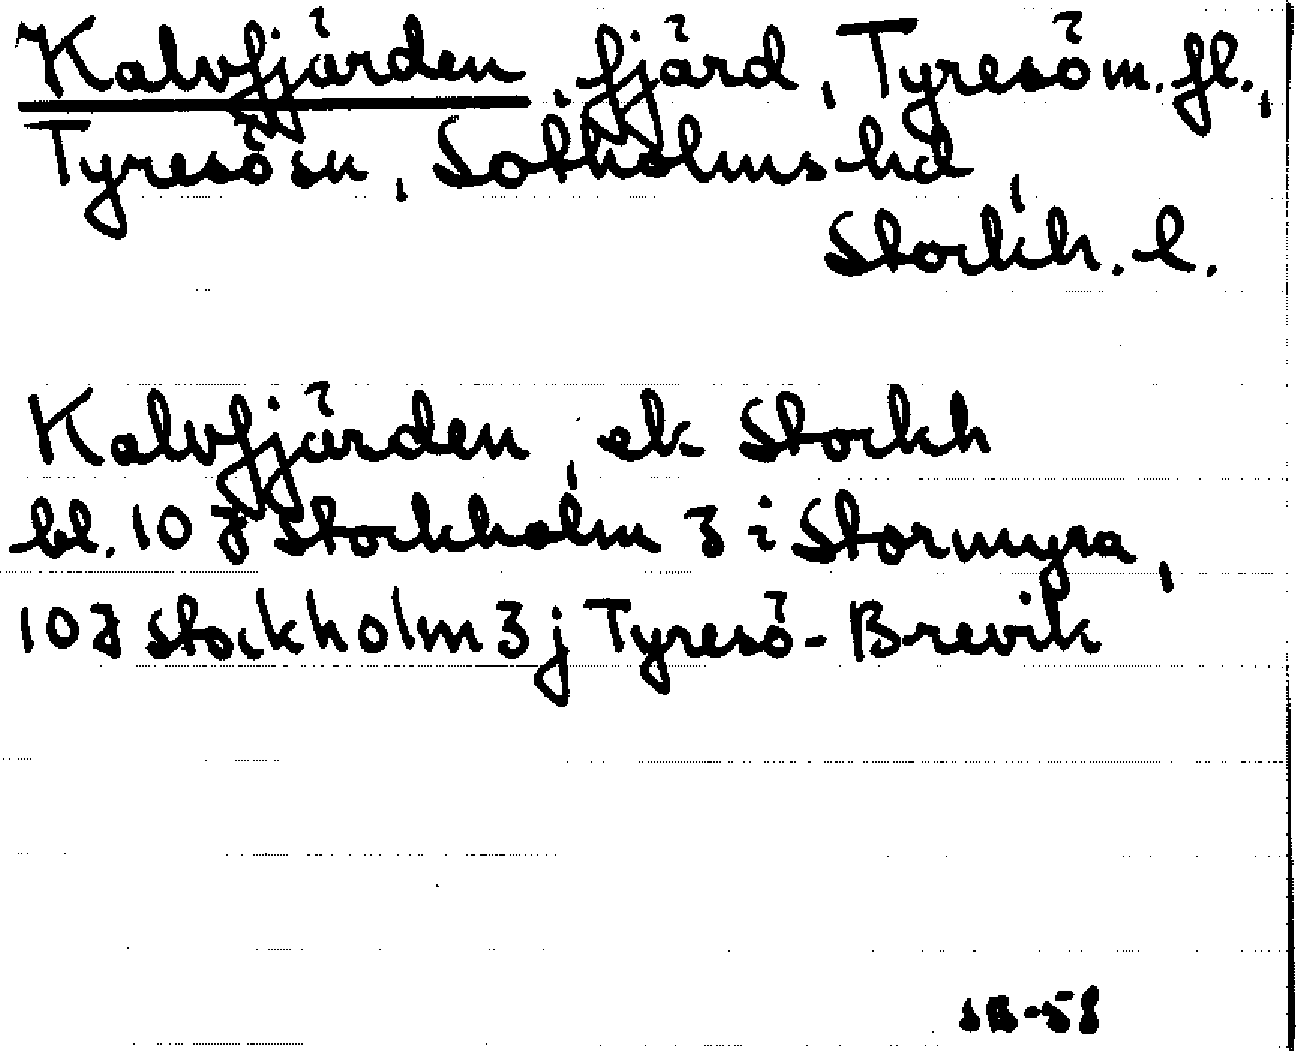 Kalvfjärden, fjärd, Tyresö m. fl.,
Tyresö sn, Sotholms hd,
Stockh. l.
Kalvfjärden, ek Stockh
bl. 10 J Stockholm 3 i Stormyra,
10 J Stockholm 3 j Tyresö-Brevik